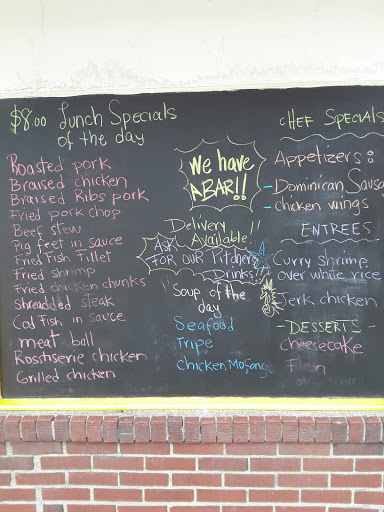 $8.00 Lunch Specials
of the day
Roasted pork
Braised chicken
Braised Ribs pork
Fried pork chop
Beef stew
Pig feet in sauce
Fried Fish Fillet
Fried shrimp
Fried chicken chunks
Shreadded steak
Cod Fish in sauce
meat ball
Rosstiserie chicken
Grilled chicken
We have
A BAR!!
Delivery
Available!!
ASK
FOR OUR Pitcher
Drinks!
"Soup of the
day
Seafood
Tripe
Chicken Mofongo
CHEF Specials
Appetizers:
- Dominican Sausa
- chicken wings
ENTREES
Curry shrimp
over white rice
Jerk chicken
- DESSERTS -
Cheesecake
Flan